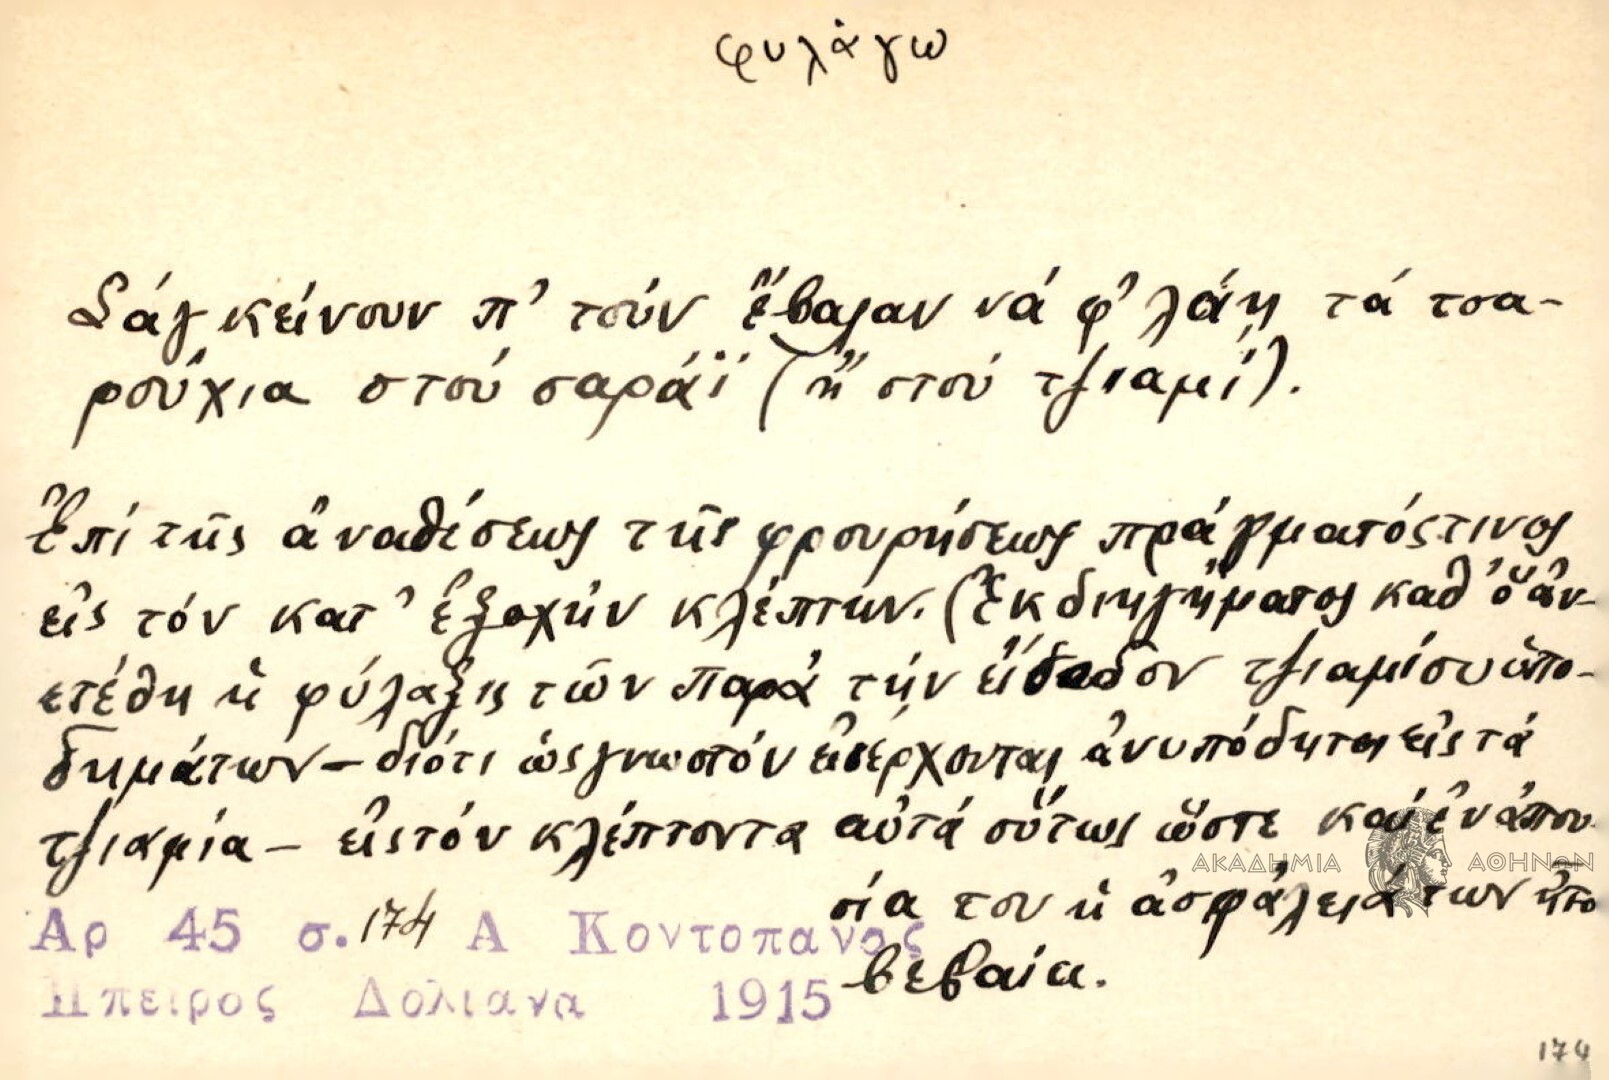 φυλάγω
Σάγ κείνουν π' τούν ἔβαγαν νά φ'λάη τά τσα-
ρούχια στού σαράϊ (ἤ στού τζιαμί).
Ἐπί τῆς ἀναθέσεως τῆς φρουρήσεως πράγματός τινος
εἰς τόν κατ' ἐξοχήν κλέπτων. (Ἐκ διηγήματος καθ' ὅ ἀν-
ετέθη ἡ φύλαξις τῶν παρά τήν εἴσοδον τζιαμίου ὑπο-
δημάτων - διότι ὡς γνωστόν εἰσέρχονται ἀνυπόδητοι εἰς τά
τζιαμία - εἰς τόν κλέπτοντα αὐτά οὕτως ὥστε καί ἐν ἀπου-
σία του ἡ ἀσφάλειά των ἦτο
βεβαία.
Αρ 45 σ. 174 Α Κοντοπανος
Ηπειρος Δολιανα 1915
ΑΚΑΔΗΜΙΑ ΑΘΗΝΩΝ
174